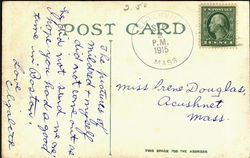 2.50
POST CARD
P.M.
1915
MASS
The pictures of
Mildred & myself
did not come out so
I did not send me one
I hope you had a good
time in Boston
Love
Elizabeth
Miss Irene Douglas,
Acushnet
Mass.
THIS SPACE FOR THE ADDRESS